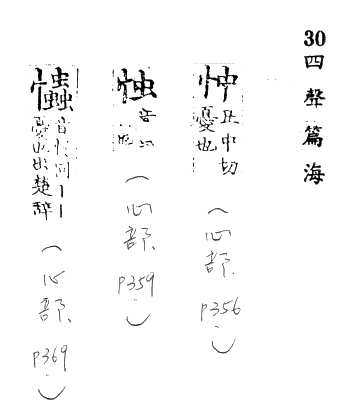 30四聲篇海
忡 丑中切
憂也
（心部、P356）
𢘋 音
（心部、P359）
音忡同丨丨
憂也出楚辞
（心部、P369）